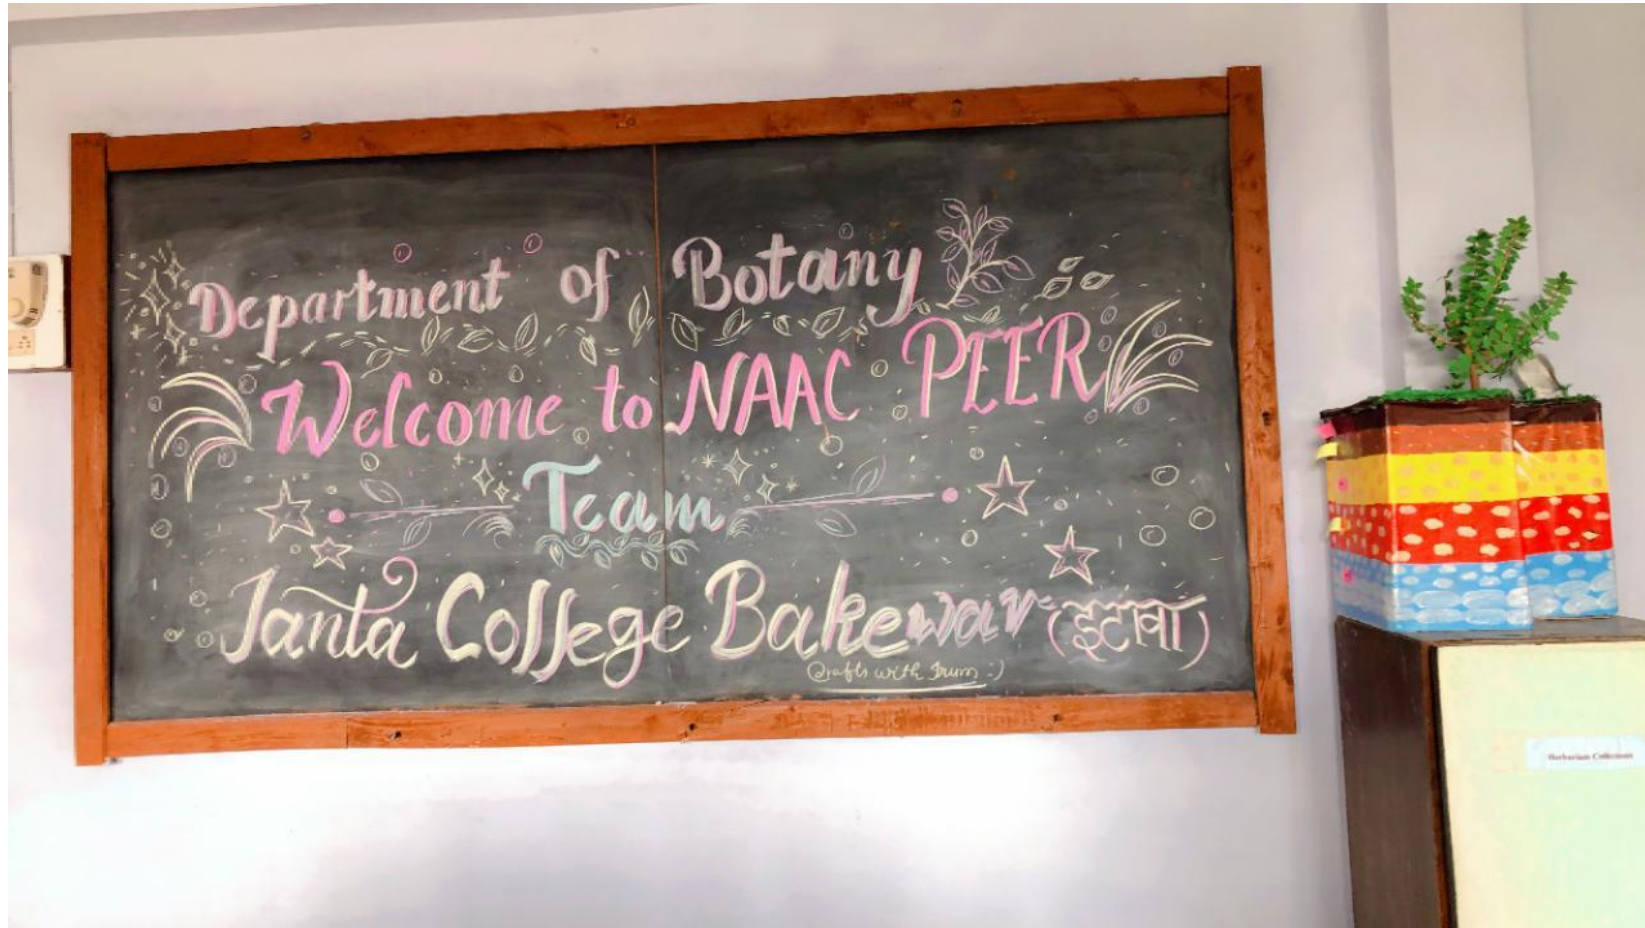 Department of Botany
Welcome to NAAC PEER
Team
Janta College Bakewar (इटावा)
Crafts with Irum :)
Herbarium Collections